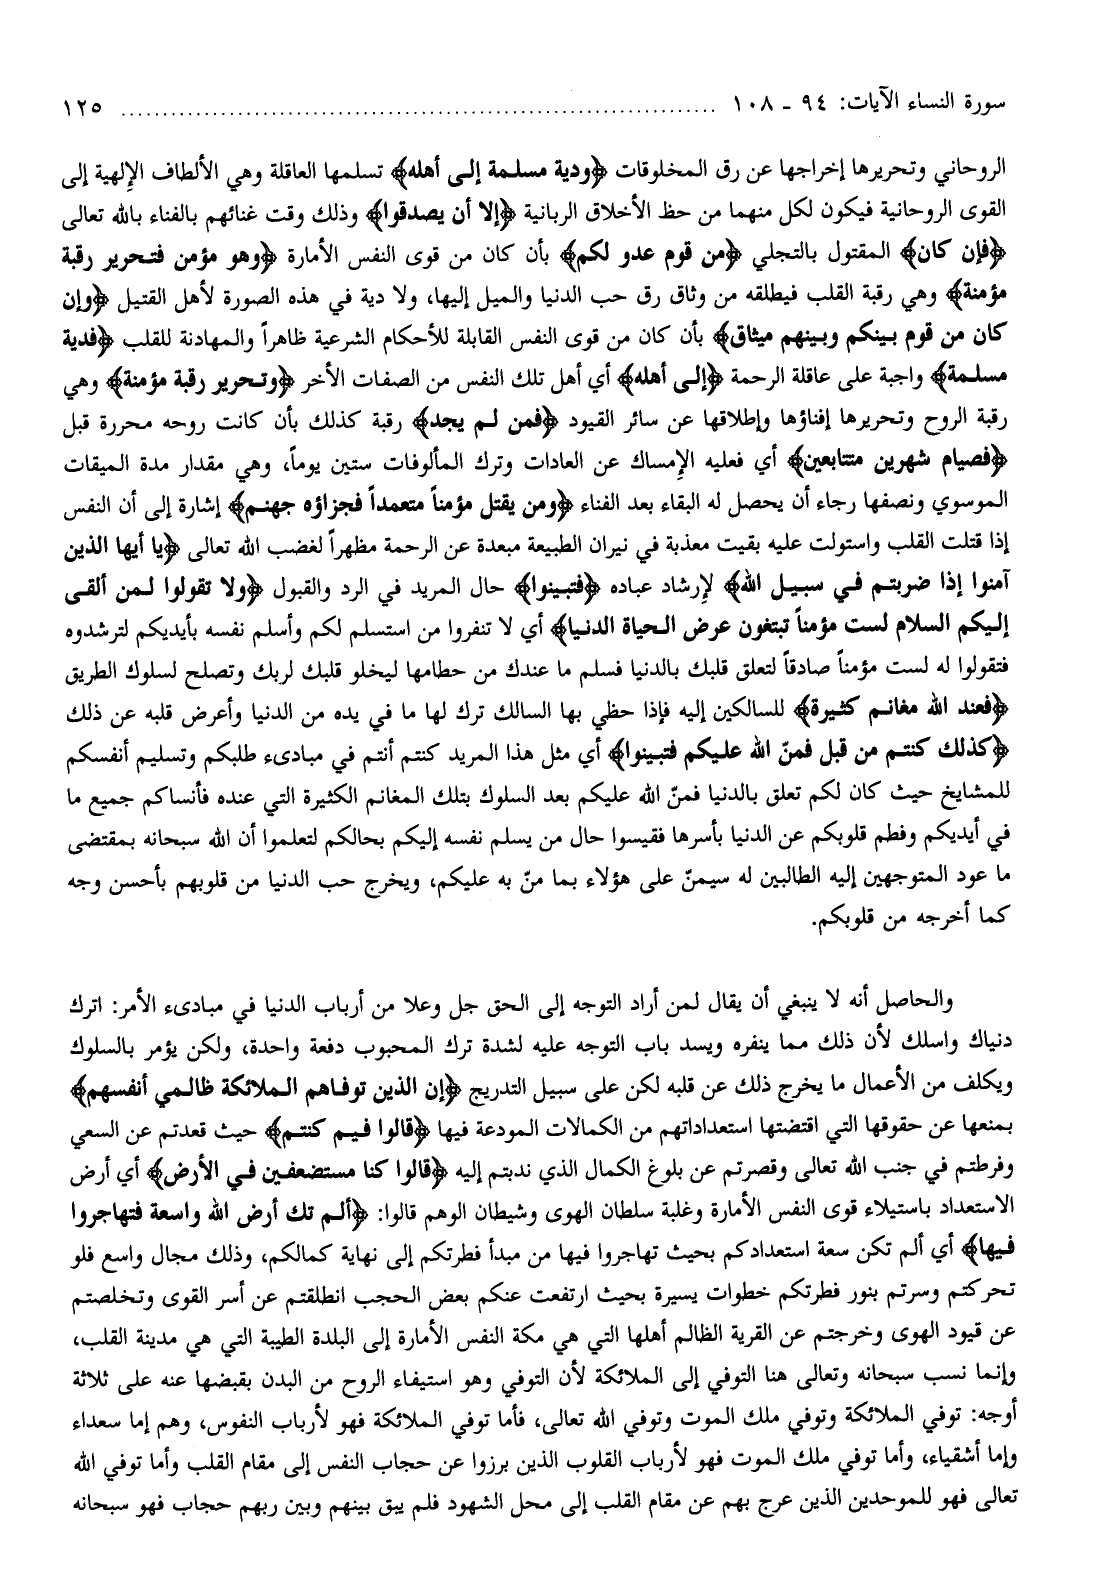 سورة النساء الآيات: ٩٤ ـ ١٠٨ ........................................ ١٢٥
الروحاني وتحريرها إخراجها عن رق المخلوقات ﴿ودية مسلمة إلى أهله﴾ تسلمها العاقلة وهي الألطاف الإلهية إلى
القوى الروحانية فيكون لكل منهما من حظ الأخلاق الربانية ﴿إلا أن يصدقوا﴾ وذلك وقت غنائهم بالفناء بالله تعالى
﴿فإن كان﴾ المقتول بالتجلي ﴿من قوم عدو لكم﴾ بأن كان من قوى النفس الأمارة ﴿وهو مؤمن فتحرير رقبة
مؤمنة﴾ وهي رقبة القلب فيطلقه من وثاق رق حب الدنيا والميل إليها، ولا دية في هذه الصورة لأهل القتيل ﴿وإن
كان من قوم بينكم وبينهم ميثاق﴾ بأن كان من قوى النفس القابلة للأحكام الشرعية ظاهراً والمهادنة للقلب ﴿فدية
مسلمة﴾ واجبة على عاقلة الرحمة ﴿إلى أهله﴾ أي أهل تلك النفس من الصفات الأخر ﴿وتحرير رقبة مؤمنة﴾ وهي
رقبة الروح وتحريرها إفناؤها وإطلاقها عن سائر القيود ﴿فمن لم يجد﴾ رقبة كذلك بأن كانت روحه محررة قبل
﴿فصيام شهرين متتابعين﴾ أي فعليه الإمساك عن العادات وترك المألوفات ستين يوماً، وهي مقدار مدة الميقات
الموسوي ونصفها رجاء أن يحصل له البقاء بعد الفناء ﴿ومن يقتل مؤمناً متعمداً فجزاؤه جهنم﴾ إشارة إلى أن النفس
إذا قتلت القلب واستولت عليه بقيت معذبة في نيران الطبيعة مبعدة عن الرحمة مظهراً لغضب الله تعالى ﴿يا أيها الذين
آمنوا إذا ضربتم في سبيل الله﴾ لإرشاد عباده ﴿فتبينوا﴾ حال المريد في الرد والقبول ﴿ولا تقولوا لمن ألقى
إليكم السلام لست مؤمناً تبتغون عرض الحياة الدنيا﴾ أي لا تنفروا من استسلم لكم وأسلم نفسه بأيديكم لترشدوه
فتقولوا له لست مؤمناً صادقاً لتعلق قلبك بالدنيا فسلم ما عندك من حطامها ليخلو قلبك لربك وتصلح لسلوك الطريق
﴿فعند الله مغانم كثيرة﴾ للسالكين إليه فإذا حظي بها السالك ترك لها ما في يده من الدنيا وأعرض قلبه عن ذلك
﴿كذلك كنتم من قبل فمنّ الله عليكم فتبينوا﴾ أي مثل هذا المريد كنتم أنتم في مبادىء طلبكم وتسليم أنفسكم
للمشايخ حيث كان لكم تعلق بالدنيا فمنّ الله عليكم بعد السلوك بتلك المغانم الكثيرة التي عنده فأنساكم جميع ما
في أيديكم وفطم قلوبكم عن الدنيا بأسرها فقيسوا حال من يسلم نفسه إليكم بحالكم لتعلموا أن الله سبحانه بمقتضى
ما عود المتوجهين إليه الطالبين له سيمنّ على هؤلاء بما منّ به عليكم، ويخرج حب الدنيا من قلوبهم بأحسن وجه
كما أخرجه من قلوبكم.
والحاصل أنه لا ينبغي أن يقال لمن أراد التوجه إلى الحق جل وعلا من أرباب الدنيا في مبادىء الأمر: اترك
دنياك واسلك لأن ذلك مما ينفره ويسد باب التوجه عليه لشدة ترك المحبوب دفعة واحدة، ولكن يؤمر بالسلوك
ويكلف من الأعمال ما يخرج ذلك عن قلبه لكن على سبيل التدريج ﴿إن الذين توفاهم الملائكة ظالمي أنفسهم﴾
بمنعها عن حقوقها التي اقتضتها استعداداتهم من الكمالات المودعة فيها ﴿قالوا فيم كنتم﴾ حيث قعدتم عن السعي
وفرطتم في جنب الله تعالى وقصرتم عن بلوغ الكمال الذي ندبتم إليه ﴿قالوا كنا مستضعفين في الأرض﴾ أي أرض
الاستعداد باستيلاء قوى النفس الأمارة وغلبة سلطان الهوى وشيطان الوهم قالوا: ﴿ألم تك أرض الله واسعة فتهاجروا
فيها﴾ أي ألم تكن سعة استعدادكم بحيث تهاجروا فيها من مبدأ فطرتكم إلى نهاية كمالكم، وذلك مجال واسع فلو
تحركتم وسرتم بنور فطرتكم خطوات يسيرة بحيث ارتفعت عنكم بعض الحجب انطلقتم عن أسر القوى وتخلصتم
عن قيود الهوى وخرجتم عن القرية الظالم أهلها التي هي مكة النفس الأمارة إلى البلدة الطيبة التي هي مدينة القلب،
وإنما نسب سبحانه وتعالى هنا التوفي إلى الملائكة لأن التوفي وهو استيفاء الروح من البدن بقبضها عنه على ثلاثة
أوجه: توفي الملائكة وتوفي ملك الموت وتوفي الله تعالى، فأما توفي الملائكة فهو لأرباب النفوس، وهم إما سعداء
وإما أشقياء، وأما توفي ملك الموت فهو لأرباب القلوب الذين برزوا عن حجاب النفس إلى مقام القلب وأما توفي الله
تعالى فهو للموحدين الذين عرج بهم عن مقام القلب إلى محل الشهود فلم يبق بينهم وبين ربهم حجاب فهو سبحانه